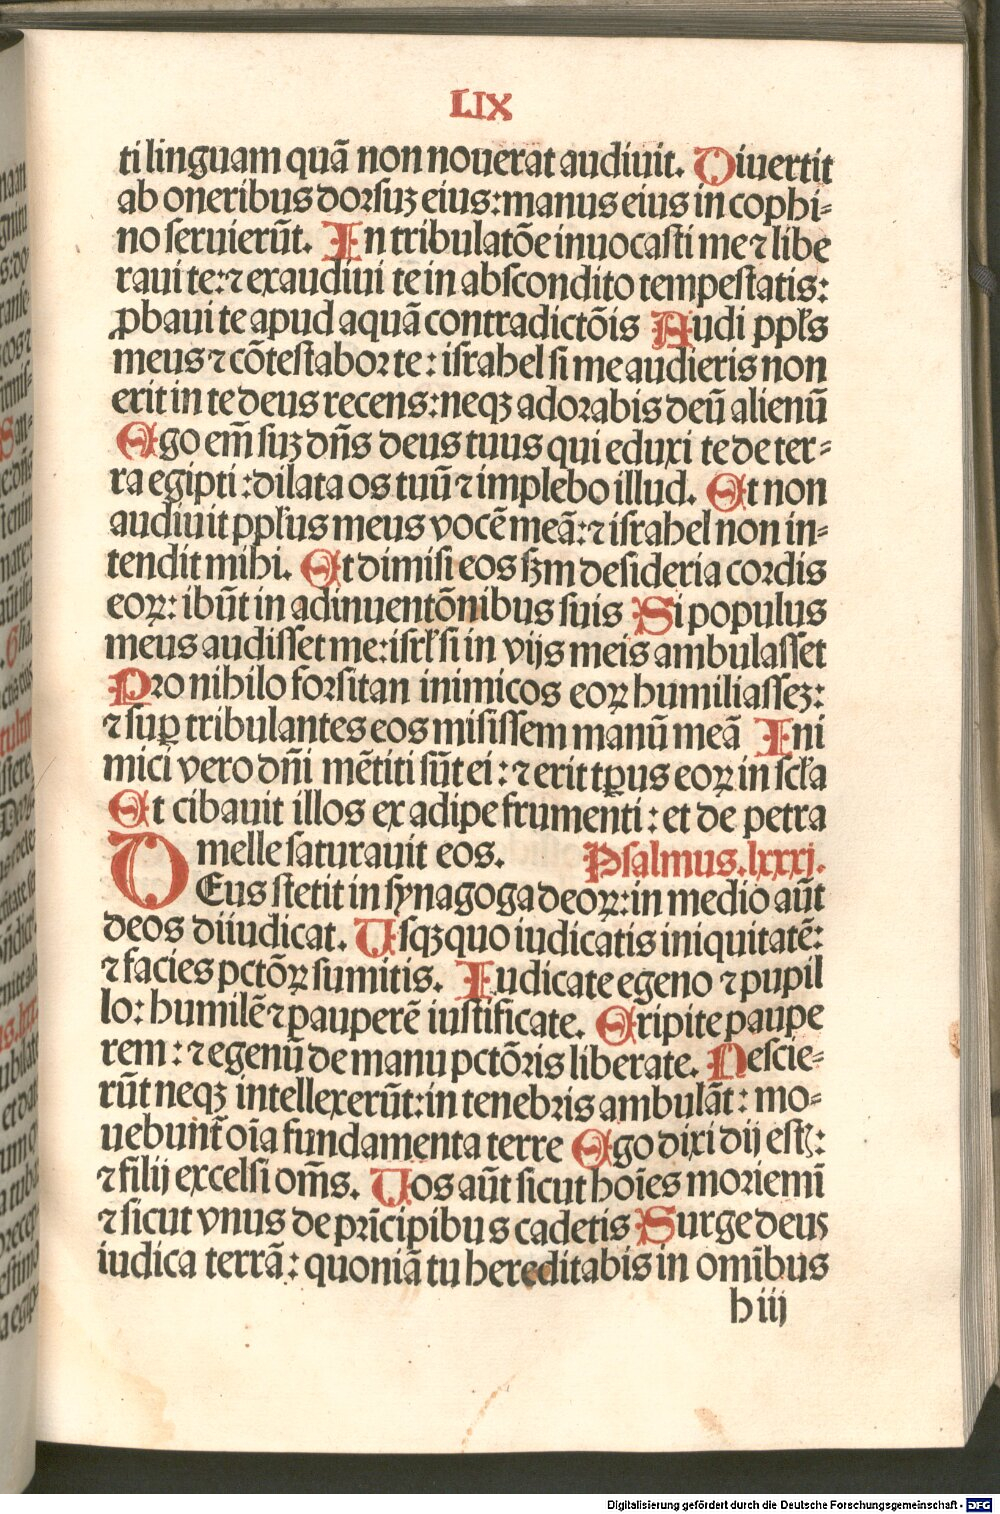 LIX
ti linguam quā non nouerat audiuit. Diuertit
ab oneribus dorsuꝫ eius: manus eius in cophi-
no seruierūt. In tribulatōe inuocasti me ⁊ libe
raui te: ⁊ exaudiui te in abscondito tempestatis:
ꝓbaui te apud aquā contradictōis Audi ppl̄s
meus ⁊ cōtestabor te: israhel si me audieris non
erit in te deus recens: neqꝫ adorabis deū alienū
Ego em̄ suꝫ dn̄s deus tuus qui eduxi te de ter-
ra egipti: dilata os tuū ⁊ implebo illud. Et non
audiuit ppl̄us meus vocē meā: ⁊ israhel non in-
tendit mihi. Et dimisi eos sꝫm desideria cordis
eoꝝ: ibūt in adinuentōnibus suis Si populus
meus audisset me: isrl̄ si in vijs meis ambulasset
Pro nihilo forsitan inimicos eoꝝ humiliasseꝫ:
⁊ suꝑ tribulantes eos misissem manū meā Ini
mici vero dn̄i mētiti sūt ei: ⁊ erit tꝑus eoꝝ in scl̄a
Et cibauit illos ex adipe frumenti: et de petra
melle saturauit eos. Psalmus.lxxxj.
DEus stetit in synagoga deoꝝ: in medio aūt
deos diiudicat. Usqꝫquo iudicatis iniquitatē:
⁊ facies pctōꝝ sumitis. Iudicate egeno ⁊ pupil
lo: humilē ⁊ pauperē iustificate. Eripite paupe
rem: ⁊ egenū de manu pctōris liberate. Nescie-
rūt neqꝫ intellexerūt: in tenebris ambulāt: mo-
uebunt̄ oīa fundamenta terre Ego dixi dij estꝫ:
⁊ filij excelsi om̄s. Uos aūt sicut hoīes moriemī
⁊ sicut vnus de prīcipibus cadetis Surge deus
iudica terrā: quoniā tu hereditabis in omībus
h iij
Digitalisierung gefördert durch die Deutsche Forschungsgemeinschaft - DFG